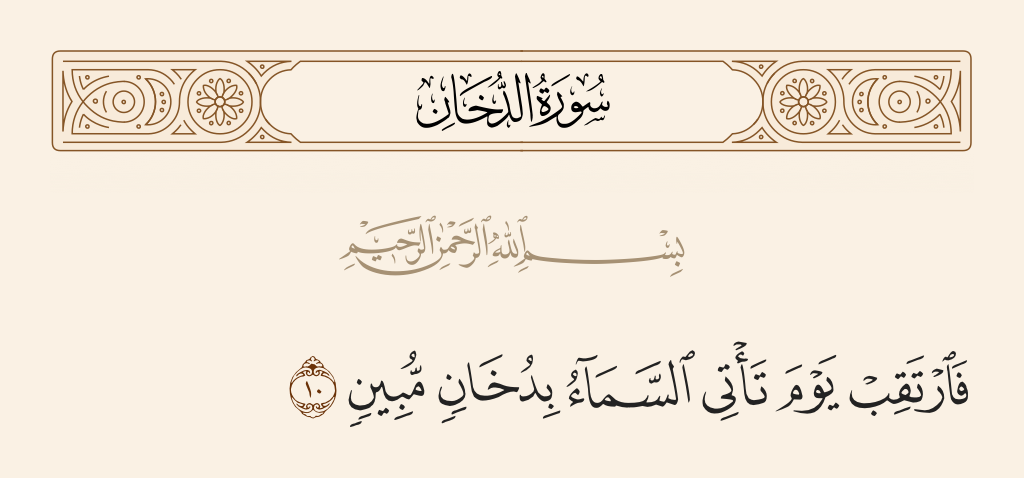 سُورَةُ الدُّخَانِ
بِسْمِ ٱللَّهِ ٱلرَّحْمَٰنِ ٱلرَّحِيمِ
فَٱرْتَقِبْ يَوْمَ تَأْتِى ٱلسَّمَآءُ بِدُخَانٍ مُّبِينٍ ١٠